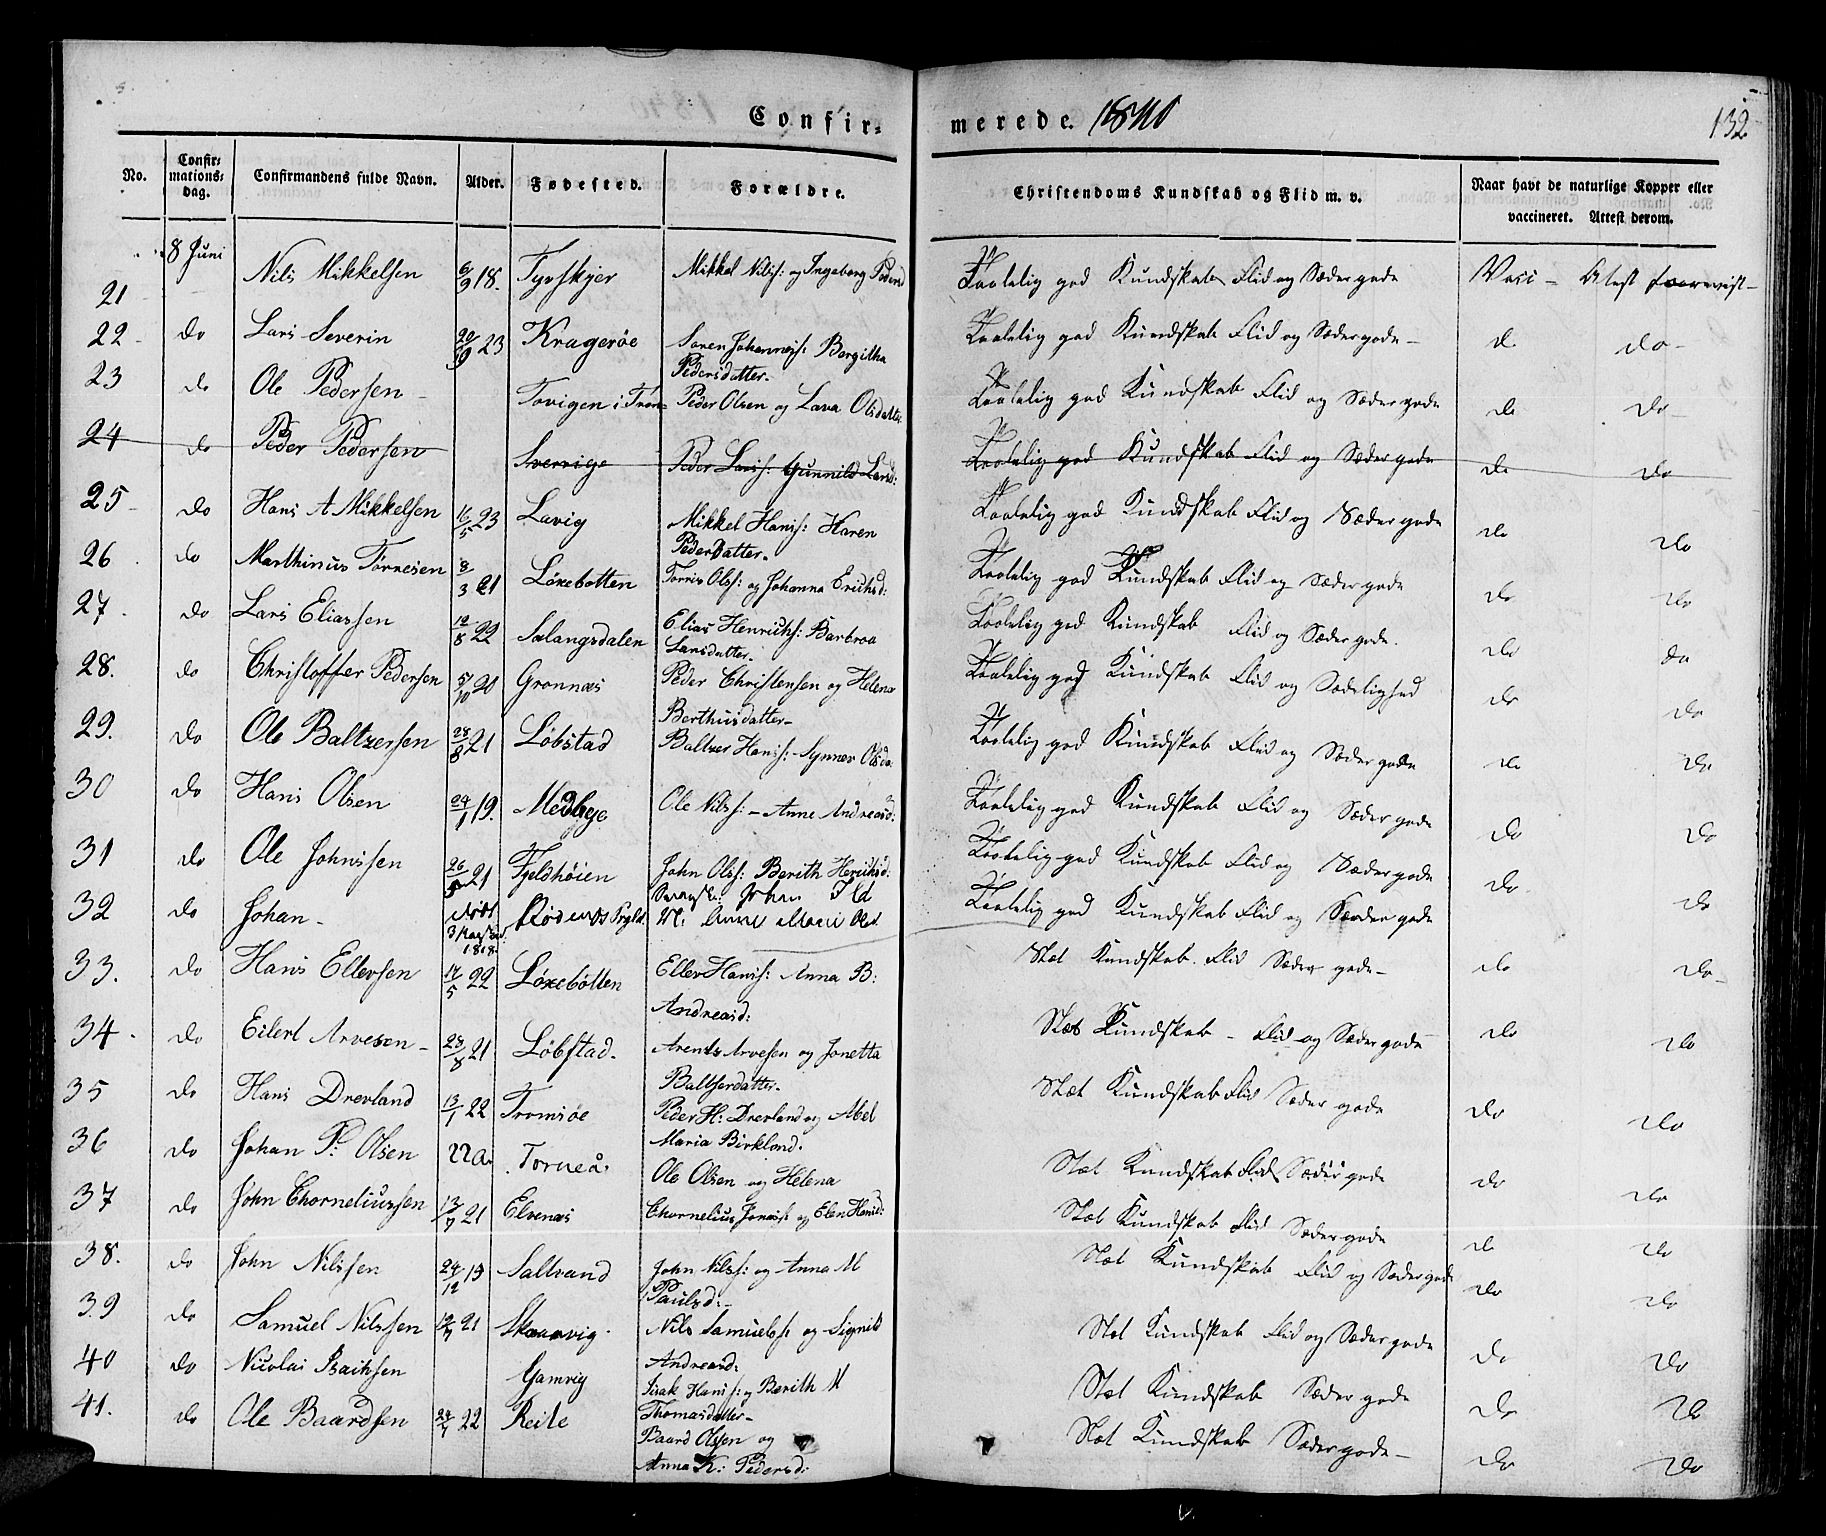 Confir-
merede. 1840
132
No.
Confir-
mations-
dag.
Confirmandens fulde Navn.
Alder.
Fødested.
Forældre.
Christendoms Kundskab og Flid m. v.
Naar havt de naturlige Kopper eller
vaccineret. Attest derom.
21 8 Juni Nils Mikkelsen 6/9 18. Tyvskjer Mikkel Nilss: og Ingeborg Kundskab Flid og Sæder gode Vacc - Attest foreviist -
22 - do Lars Severin 20/9 23 Kragerøe Soren Johannes: Bergitha
Pedersdatter - Kundskab Flid og Sæder gode - do do -
23 do Ole Pedersen - Tovigen i Peder Olsen og Lava Olsdatter Kundskab Flid og Sæder gode do do -
24 do Peder Pedersen Sverrige Peder Larss: Gunnild Larsd: Kundskab Flid og Sæder gode do do
25 - do Hans A Mikkelsen 16/5 23 Lavig Mikkel Hanss: Karen
Pedersdatter - Kundskab Flid og Sæder gode do do
26 do Marthinus Tørresen 8/3 21 Løxebotten Torris Olss: og Johanna Erichsd: Kundskab Flid og Sæder gode do do
27 - do Lars Eliassen 12/8 22 Salangsdalen Elias Henrichs: Barbroa
Larsdatter - Kundskab Flid og Sæder gode. do do
28. do Christoffer Pedersen 20 Gronnæs Peder Christensen og Helena
Berthusdatter - Kundskab Flid og Sædelighed do do
29. do Ole Baltzersen 28/8 21 Løbstad Baltzer Hanss: Synnev Olsd: Kundskab Flid og Sæder gode do do
30 do Hans Olsen 24/1 19. Medbye Ole Nilss: - Anne Andreasd: Kundskab Flid og Sæder gode do do
31 do Ole Johnssen 26/5 21 Fjeldhøien John Olss: Berith Henrichsd: Kundskab Flid og Sæder gode do do
32 do Johan - født
1818 Johan
Anne Marie Olsd Kundskab Flid og Sæder gode
33. do Hans Ellevsen 17/5 22 Løxebotten Ellev Hanss: Anna B:
Andreasd: Slet Kundskab. Flid Sæder gode - do do -
34 - do Eilert Arvesen - 28/8 21 Løbstad. Arents Arvesen og Jonetta
Baltserdatter - Slet Kundskab - Flid og Sæder gode do do
35 do Hans Drevland 13/1 22 Tromsøe Peder H: Drevland og Abel
Maria Birkland. Slet Kundskab Flid Sæder gode do do
36 do Johan P: Olsen 22 a Torneå. Ole Olsen og Helena Slet Kundskab Flid Sæder gode do do
37 do John Chorneliussen 13/7 21 Elvenæs Chornelius Jonass: og Elen Hansd: Slet Kundskab Flid Sæder gode do do
38. do John Nilssen 24/12 19 Saltvand John Nilss: og Anna M
Paulsd: - Slet Kundskab Flid og Sæder gode do do
39 do Samuel Nilssen 21 Skaarvig. Nils Samuelss: og Signild
Andreasd: Slet Kundskab Flid og Sæder gode do do
40 do Nicolai Isachsen Gamvig Isak Hanss: og Berith M
Thomasdatter - Slet Kundskab Sæder gode do do
41. do Ole Baardsen 22 Reite Baard Olssen og
Anna K: Pedersd: Slet Kundskab Sæder gode - do do